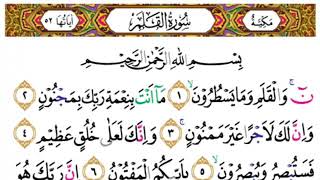 مَكِّيَّة سُورَةُ الْقَلَمِ آيَاتُهَا ٥٢
بِسْمِ اللَّهِ الرَّحْمَٰنِ الرَّحِيمِ
نٓ ۚ وَالْقَلَمِ وَمَا يَسْطُرُونَ ١ مَا أَنتَ بِنِعْمَةِ رَبِّكَ بِمَجْنُونٍ ٢
وَإِنَّ لَكَ لَأَجْرًا غَيْرَ مَمْنُونٍ ٣ وَإِنَّكَ لَعَلَىٰ خُلُقٍ عَظِيمٍ ٤
فَسَتُبْصِرُ وَيُبْصِرُونَ ٥ بِأَييِّكُمُ الْمَفْتُونُ ٦ إِنَّ رَبَّكَ هُوَ